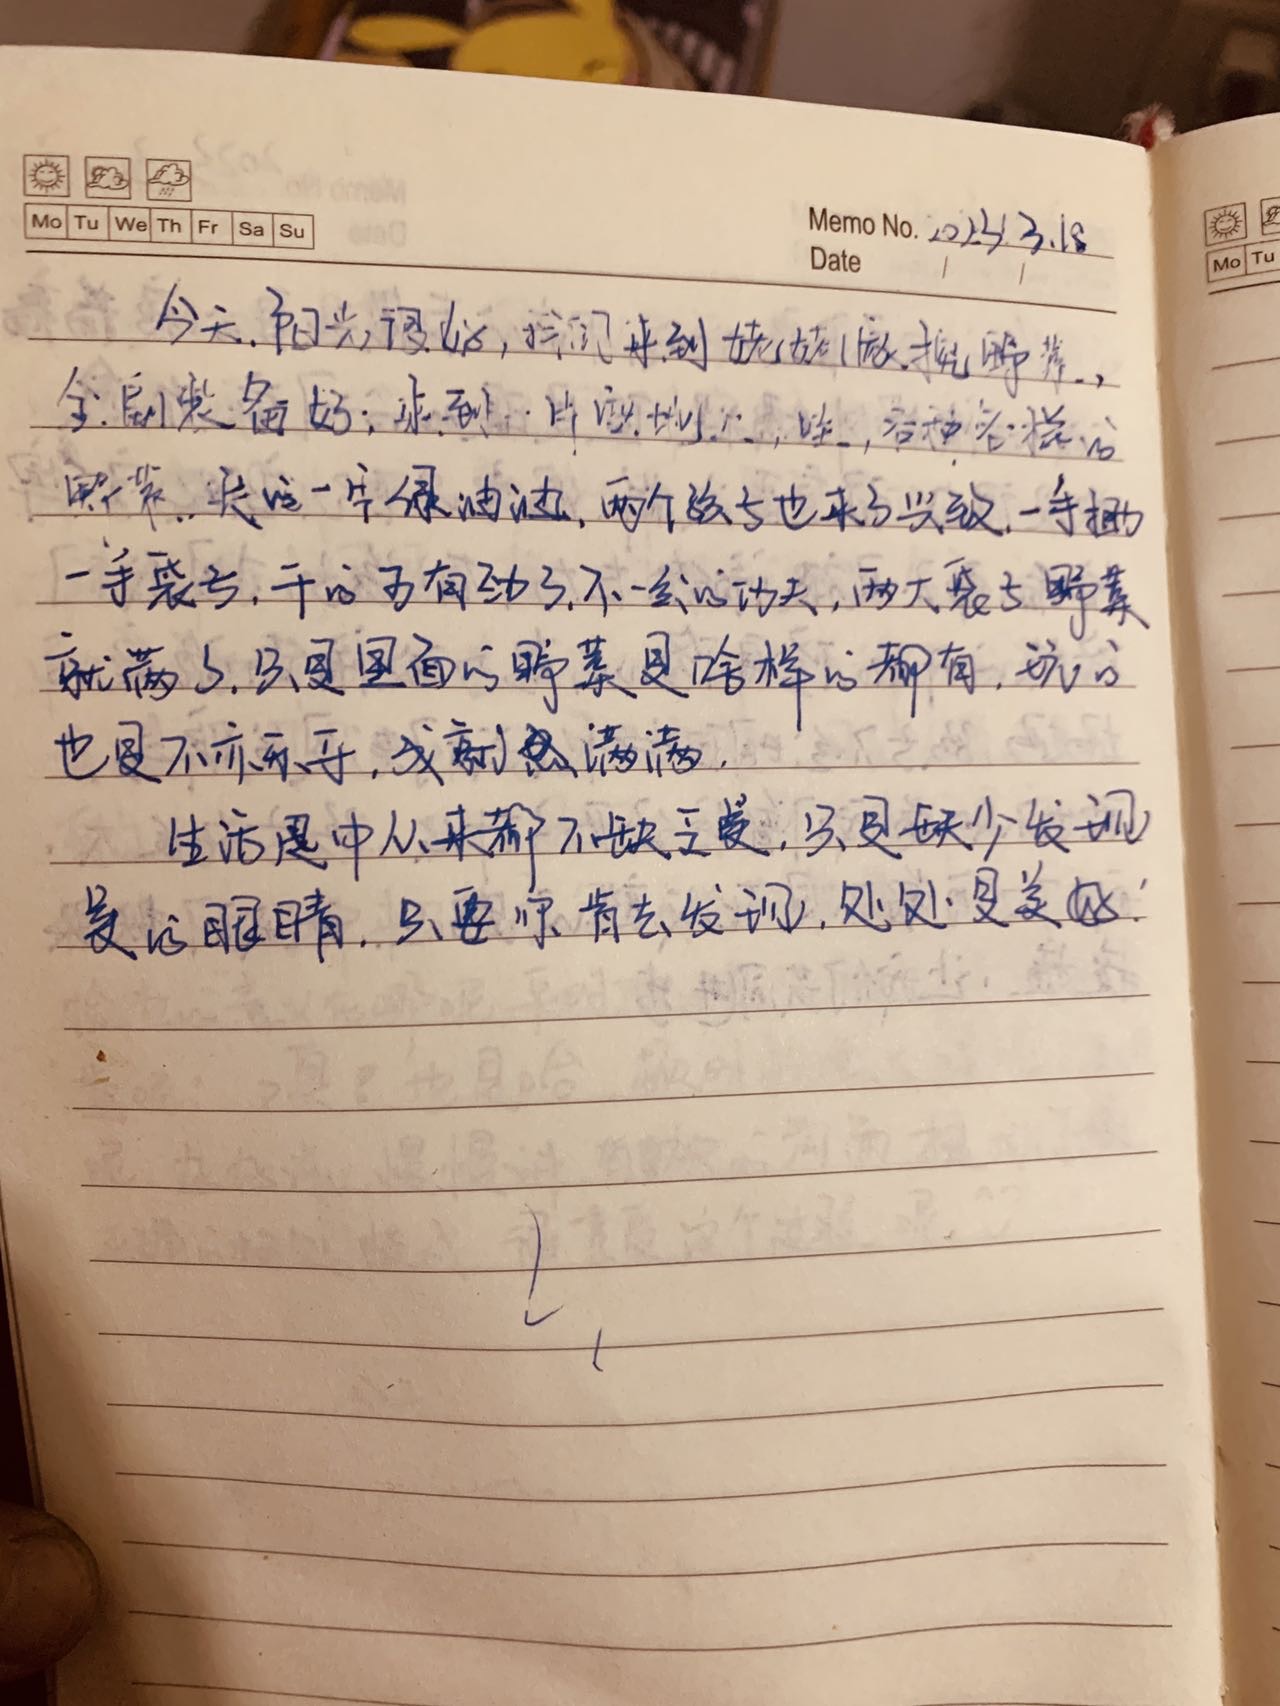 Mo Tu We Th Fr Sa Su
Memo No. 2023/3.18
Date / /
今天阳光很好,我们来到姥姥家挖野菜,
全副装备好,来到一片空地上,哇,各种各样的
野菜,长的一片绿油油,两个孩子也来了兴致,一手铲
一手袋子,干的可有劲了,不一会的功夫,两大袋子野菜
就满了,只是里面的野菜是啥样的都有,玩的
也是不亦乐乎,成就感满满.
生活当中从来都不缺乏爱,只是缺少发现
爱的眼睛,只要你肯去发现,处处是美好!
Mo Tu